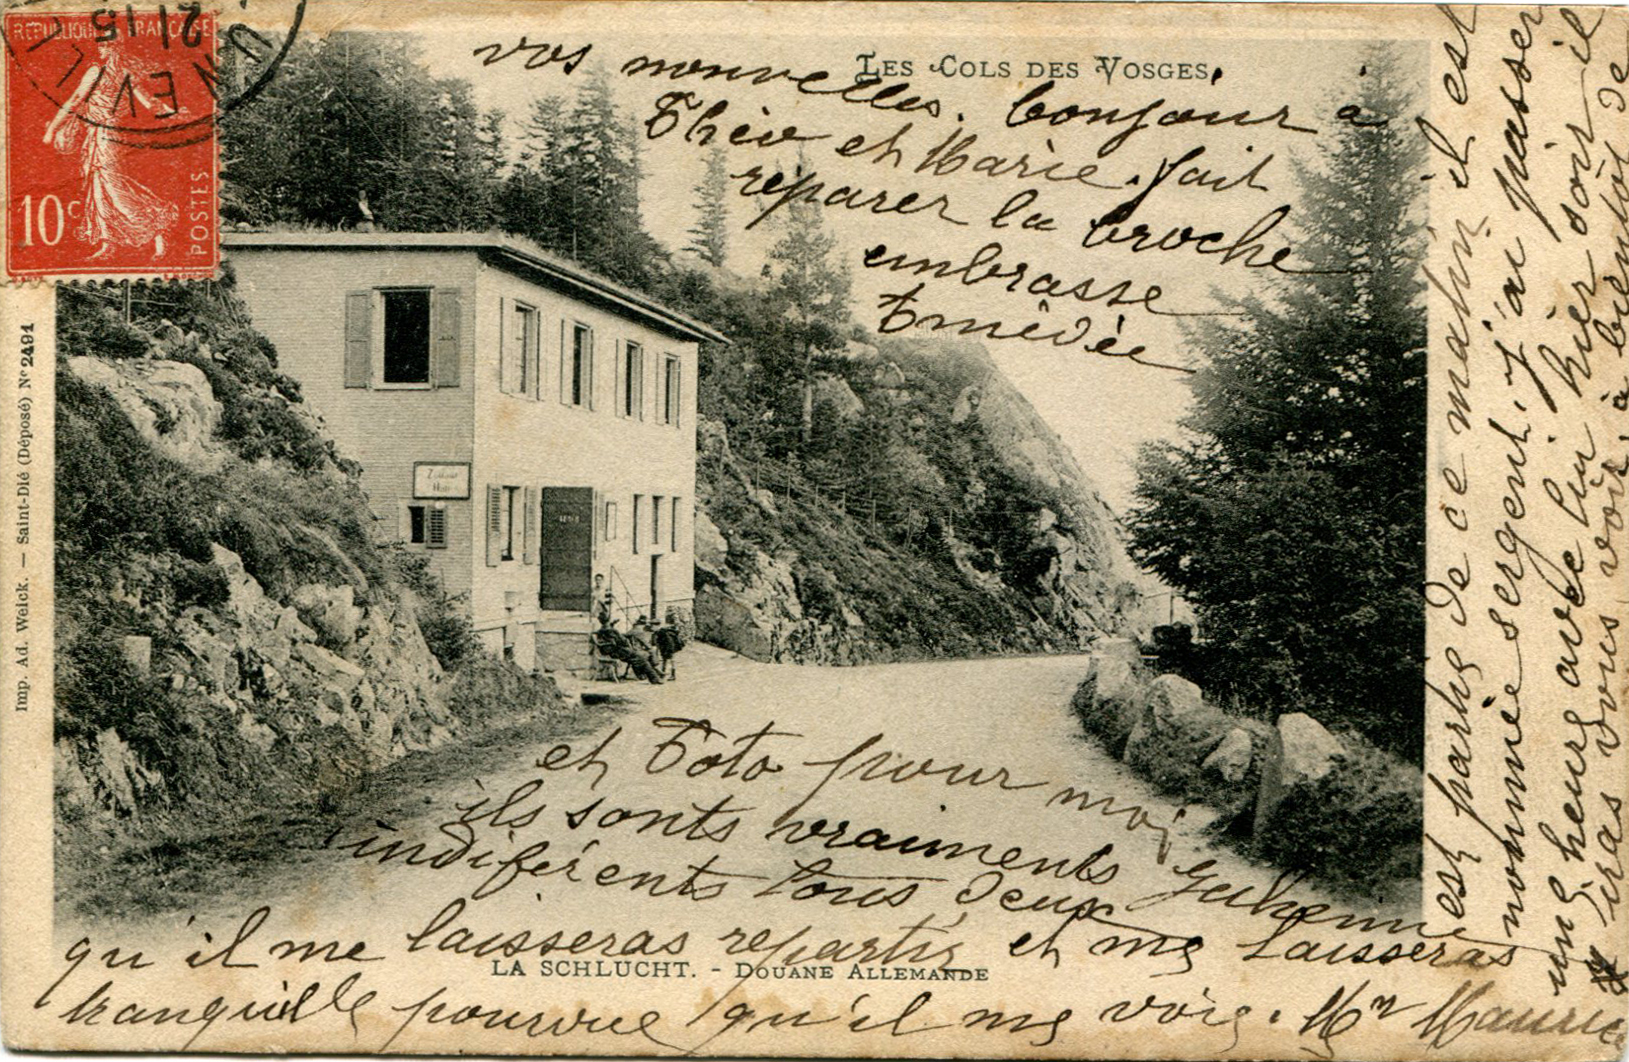 RÉPUBLIQUE FRANÇAISE
10c
POSTES
21 15
LUNEVILLE
LES COLS DES VOSGES.
vos nouvelles. bonjour à
Théo et Marie. fait
réparer la broche
embrasse
Amédée
et Toto pour moi
ils sonts vraiments
indiférents tous deux
qu'il me laisseras repartir et me laisseras
tranquille pourvue qu'il me voie. Mr Maurice
est partie de ce matin il est
nommée sergent, j'ai passer
une heure avec lui hier soir il
iras vous voir à bientôt de
LA SCHLUCHT. - DOUANE ALLEMANDE
Imp. Ad. Weick. — Saint-Dié (Déposé) No 2494